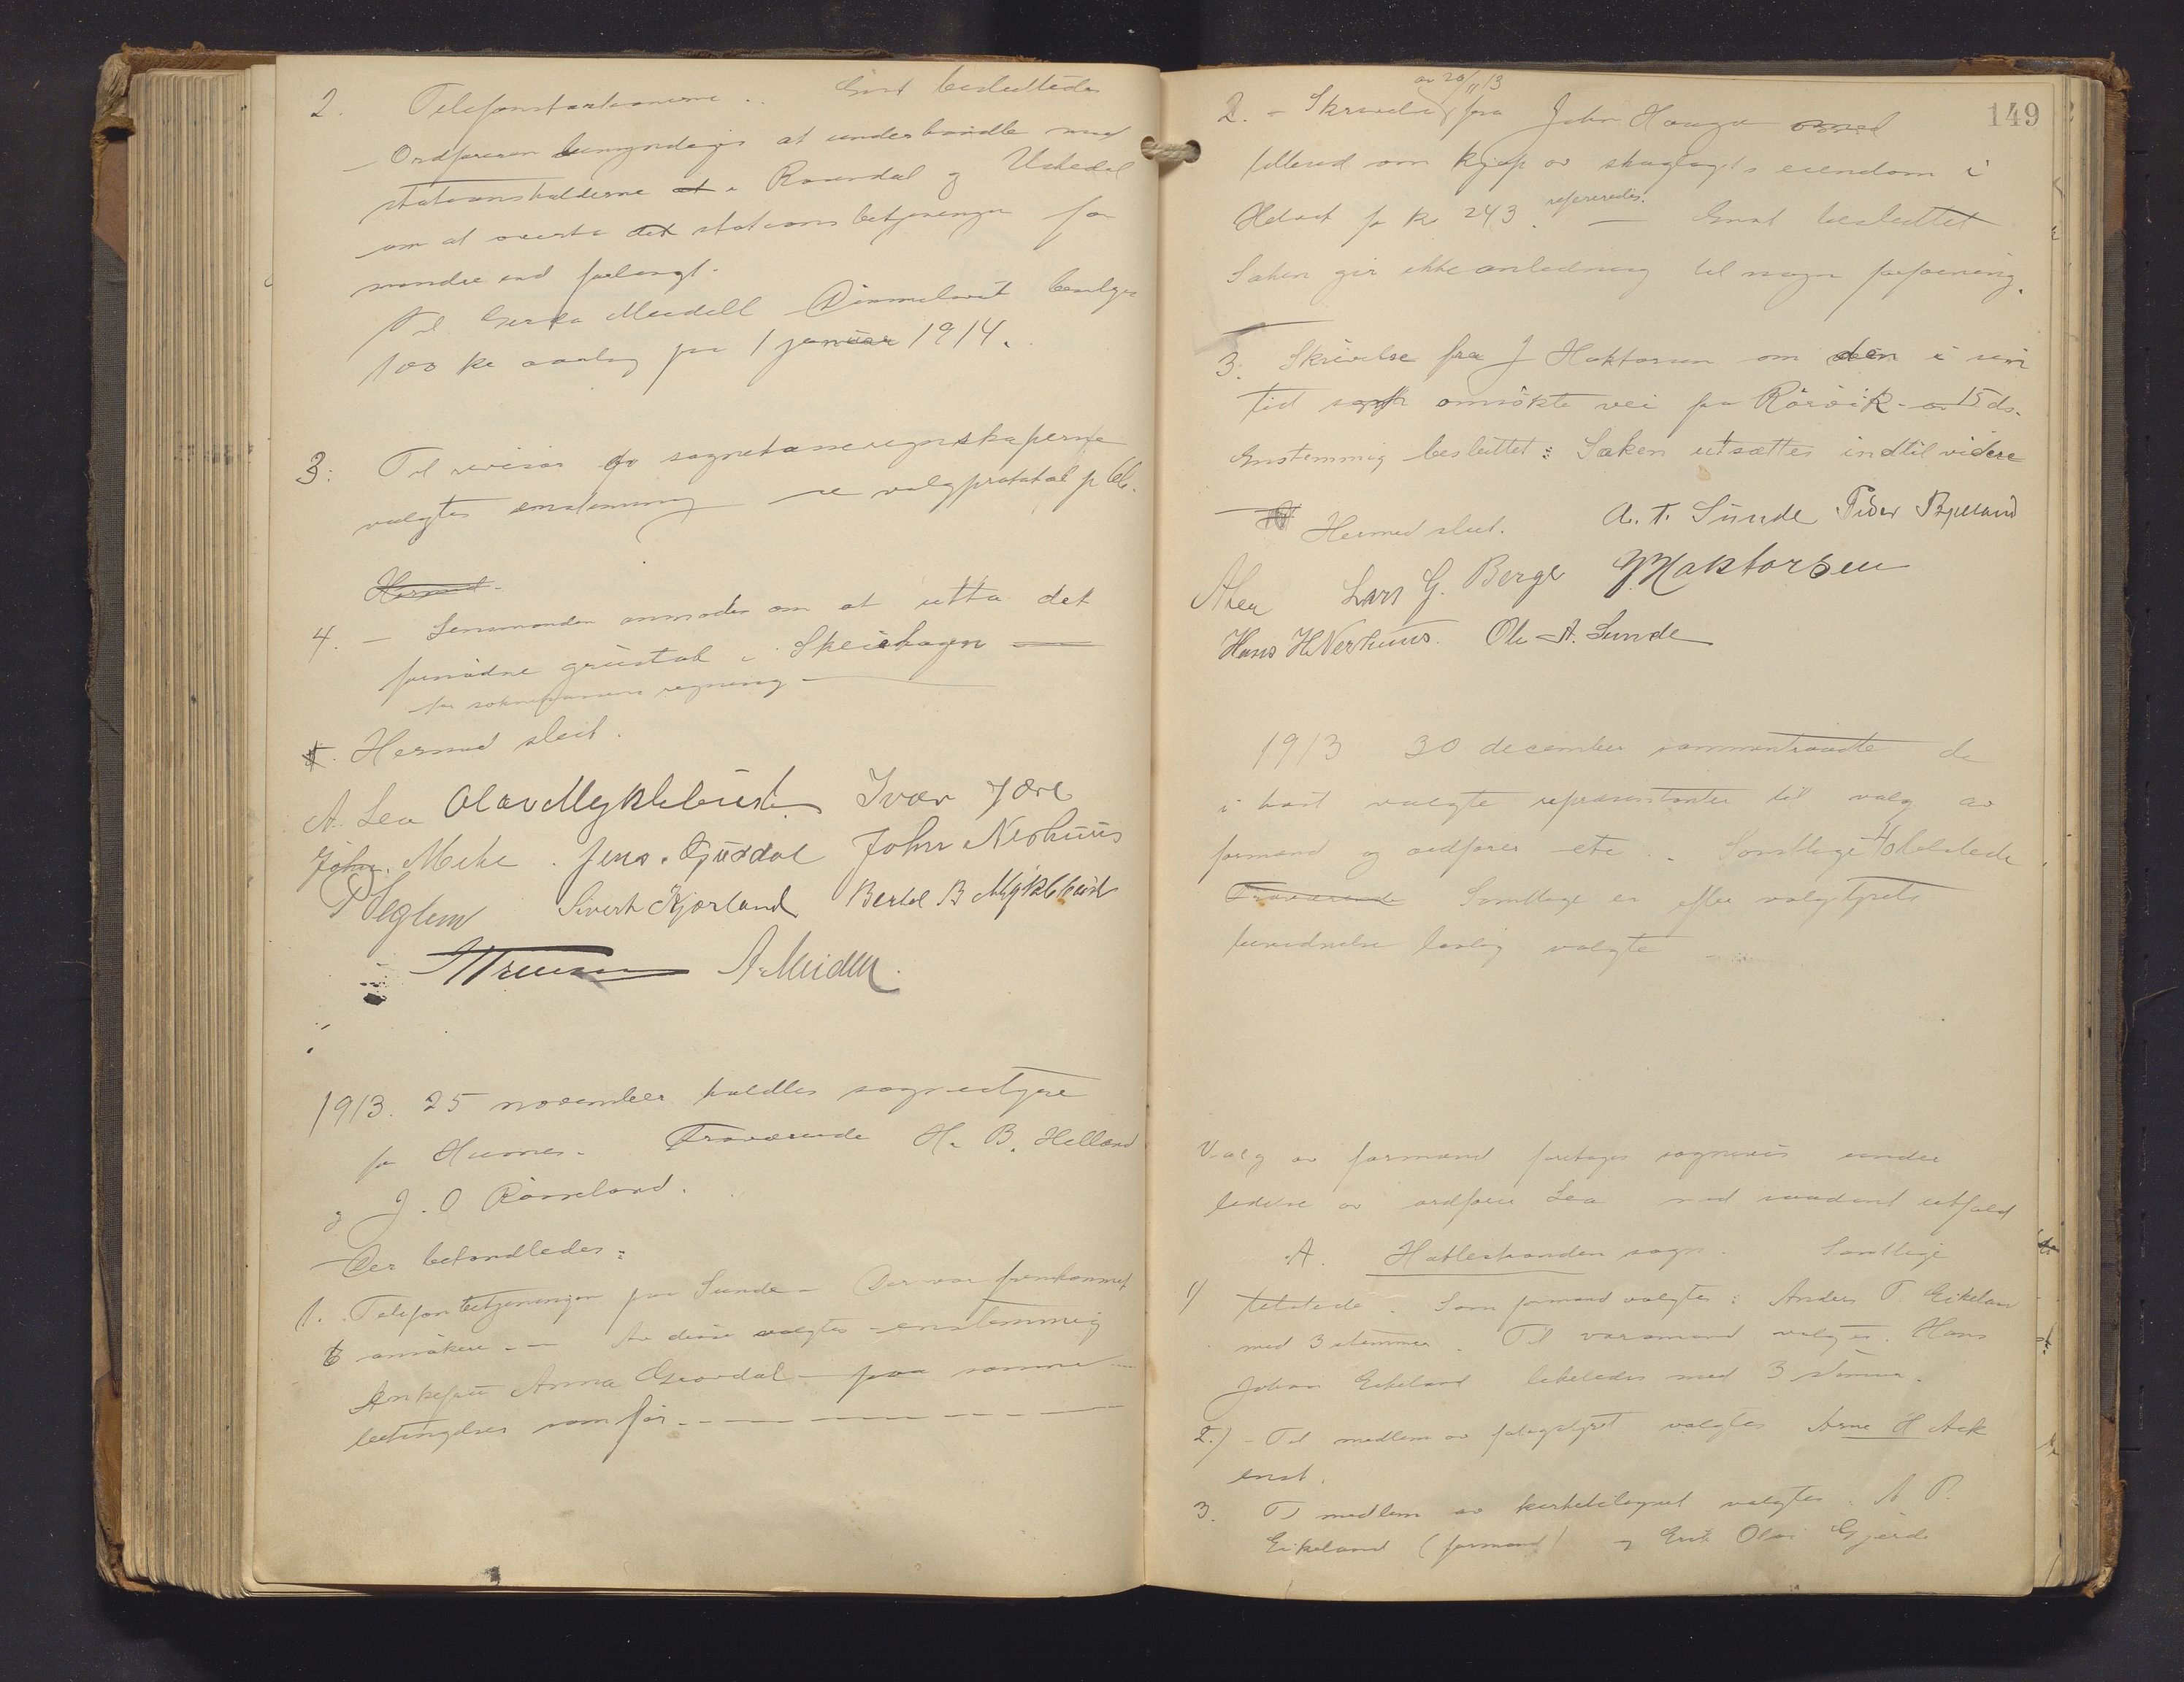 2. Telefonstationerne .. Enst besluttedes
Ordføreren bemyndiges at underhandle med
stationsholderne at i Rosendal og Uskedal
om at overta det stationsbetjeningen for
mindre end forlangt.
Til Gerda Meidell Dimmelsvik bevilges
100 kr aarlig fra 1 januar 1914.
3: Til revisor for sognekasseregnskaperne
valgtes enstemmig se valgprotokol p
Hermed.
4. - Lensmanden anmodes om at utta det
fornødne grustak i Skeiehagen
for sokneparnens regning -
Hermed slut.
A. Lea Olav Myklebust Ivar Jære
John. Mehl . Jens. Guddal John Nerhuus
P Seglem Sivert Kjærland Bertel B Myklebust
A Meidell.
1913. 25 november holdtes sognestyre
på Husnes. Fraværende H. B. Helland
og J. O Røsseland.
Der behandledes:
1. Telefonbetjeningen paa Sunde - Der var fremkommet
6 ansøkere -- Av disse valgtes enstemmig
Enkefru Anna Guddal - paa samme
betingelser som før.
149
2. - Skrivelse av 20/11 13 fra John Hauge med
tilbud om kjøp av skoglagts eiendom i
Ølvet for kr 243. refereredes. - Enst besluttet
Saken gir ikke anledning til nogen føiening.
3. Skrivelse fra J Haktorsen om den i sin
tid ansökte vei fra Rörvik - av 15 ds.
Enstemmig besluttet: Saken utsættes indtil videre
Hermed slut. A. T. Sunde Peder Bjelland
A Lea Lars G. Berge J Haktorsen
Hans H. Nerhuus. Ole A. Sunde
1913 30 december sammentraadte de
i høst valgte repræsentanter til valg av
formænd og ordfører etc.. Samtlige 40 tilstede
Fraværende Samtlige er efter valgstyrets
bevidnelse lovlig valgte
Valg av formænd foretages sognevis under
ledelse av ordfører Lea med saadant utfald
A. Hatlestranden sogn. Samtlige
1) tilstede. Som formand valgtes: Anders T. Eikeland
med 3 stemmer. Til varamand valgtes. Hans
Johan Eikeland likeledes med 3 stemmer.
2.) - Til medlem av valgstyret valgtes Arne H Aek
enst.
3. Til medlem av kirketilsynet valgtes. A P.
Eikeland (formand) og Erik Olai Gjerde